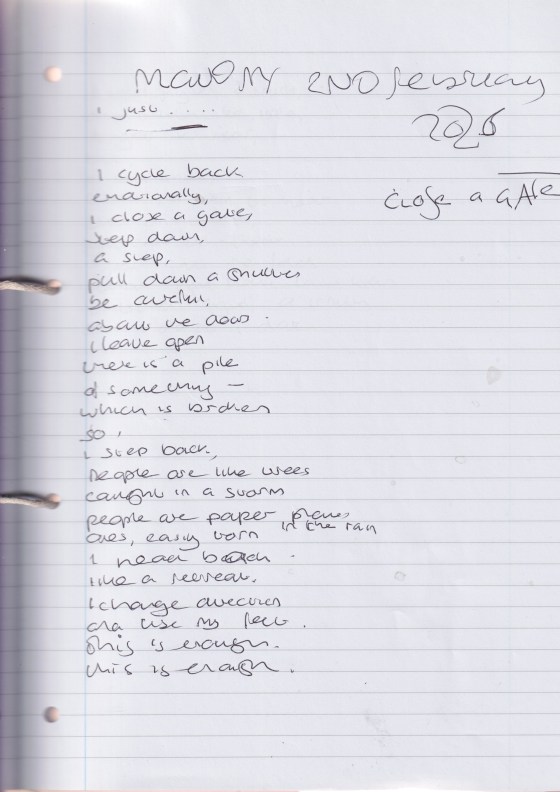 MONDAY 2ND February
2026
i just . . . . .
close a GATE
I cycle back
emotionally,
i close a gate,
step down,
a step,
pull down a shutter
be careful,
about the door .
i leave open
there is a pile
of something —
which is broken
so ,
i step back,
people are like trees
caught in a storm
people are paper planes
in the rain
ones, easily torn
I head back .
like a retreat.
i change direction
and use my feet .
this is enough.
this is enough .